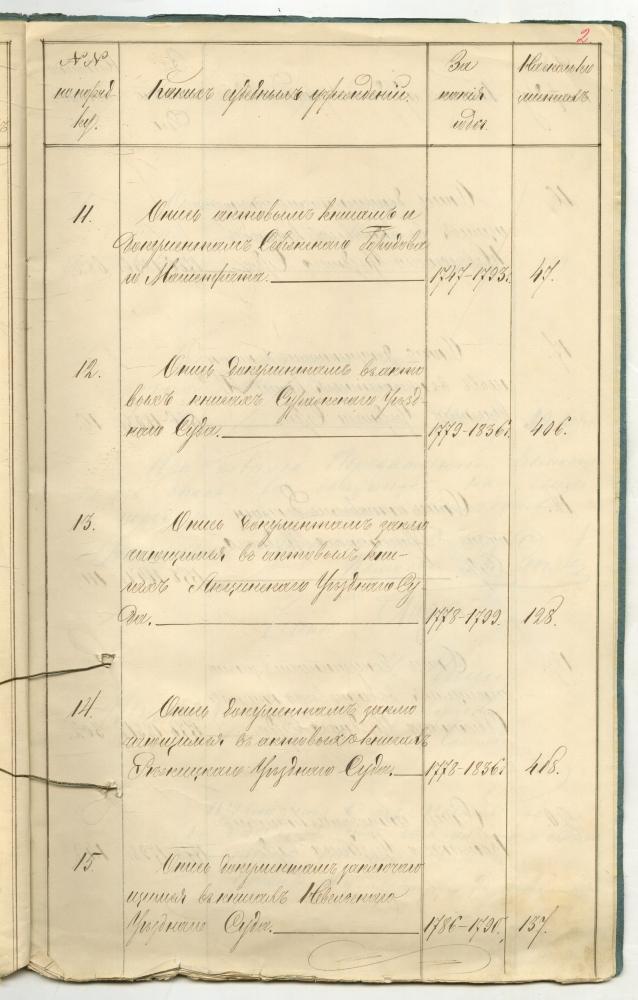 2
№ №
по поряд-
ку.
Какихъ судебныхъ учрежденій.
За
какіе
годы.
На сколькихъ
листахъ
11.
Опись актовымъ книгамъ и
документамъ Себежскаго Городова
го Магистрата.
1747-1793г.
47.
12.
Опись документамъ въ акто
выхъ книгахъ Суражскаго Уѣзд-
наго Суда.
1779-1836г.
406.
13.
Опись документамъ заклю
чающимся въ актовыхъ кни-
гахъ Люцинскаго Уѣзднаго Су-
да.
1778-1799.
128.
14.
Опись документамъ заклю
чающимся въ актовыхъ книгахъ
Рѣжицкаго Уѣзднаго Суда.
1778-1836г.
418.
15.
Опись документамъ заключаю
щимся въ книгахъ Невельскаго
Уѣзднаго Суда.
1786-1790.
137.